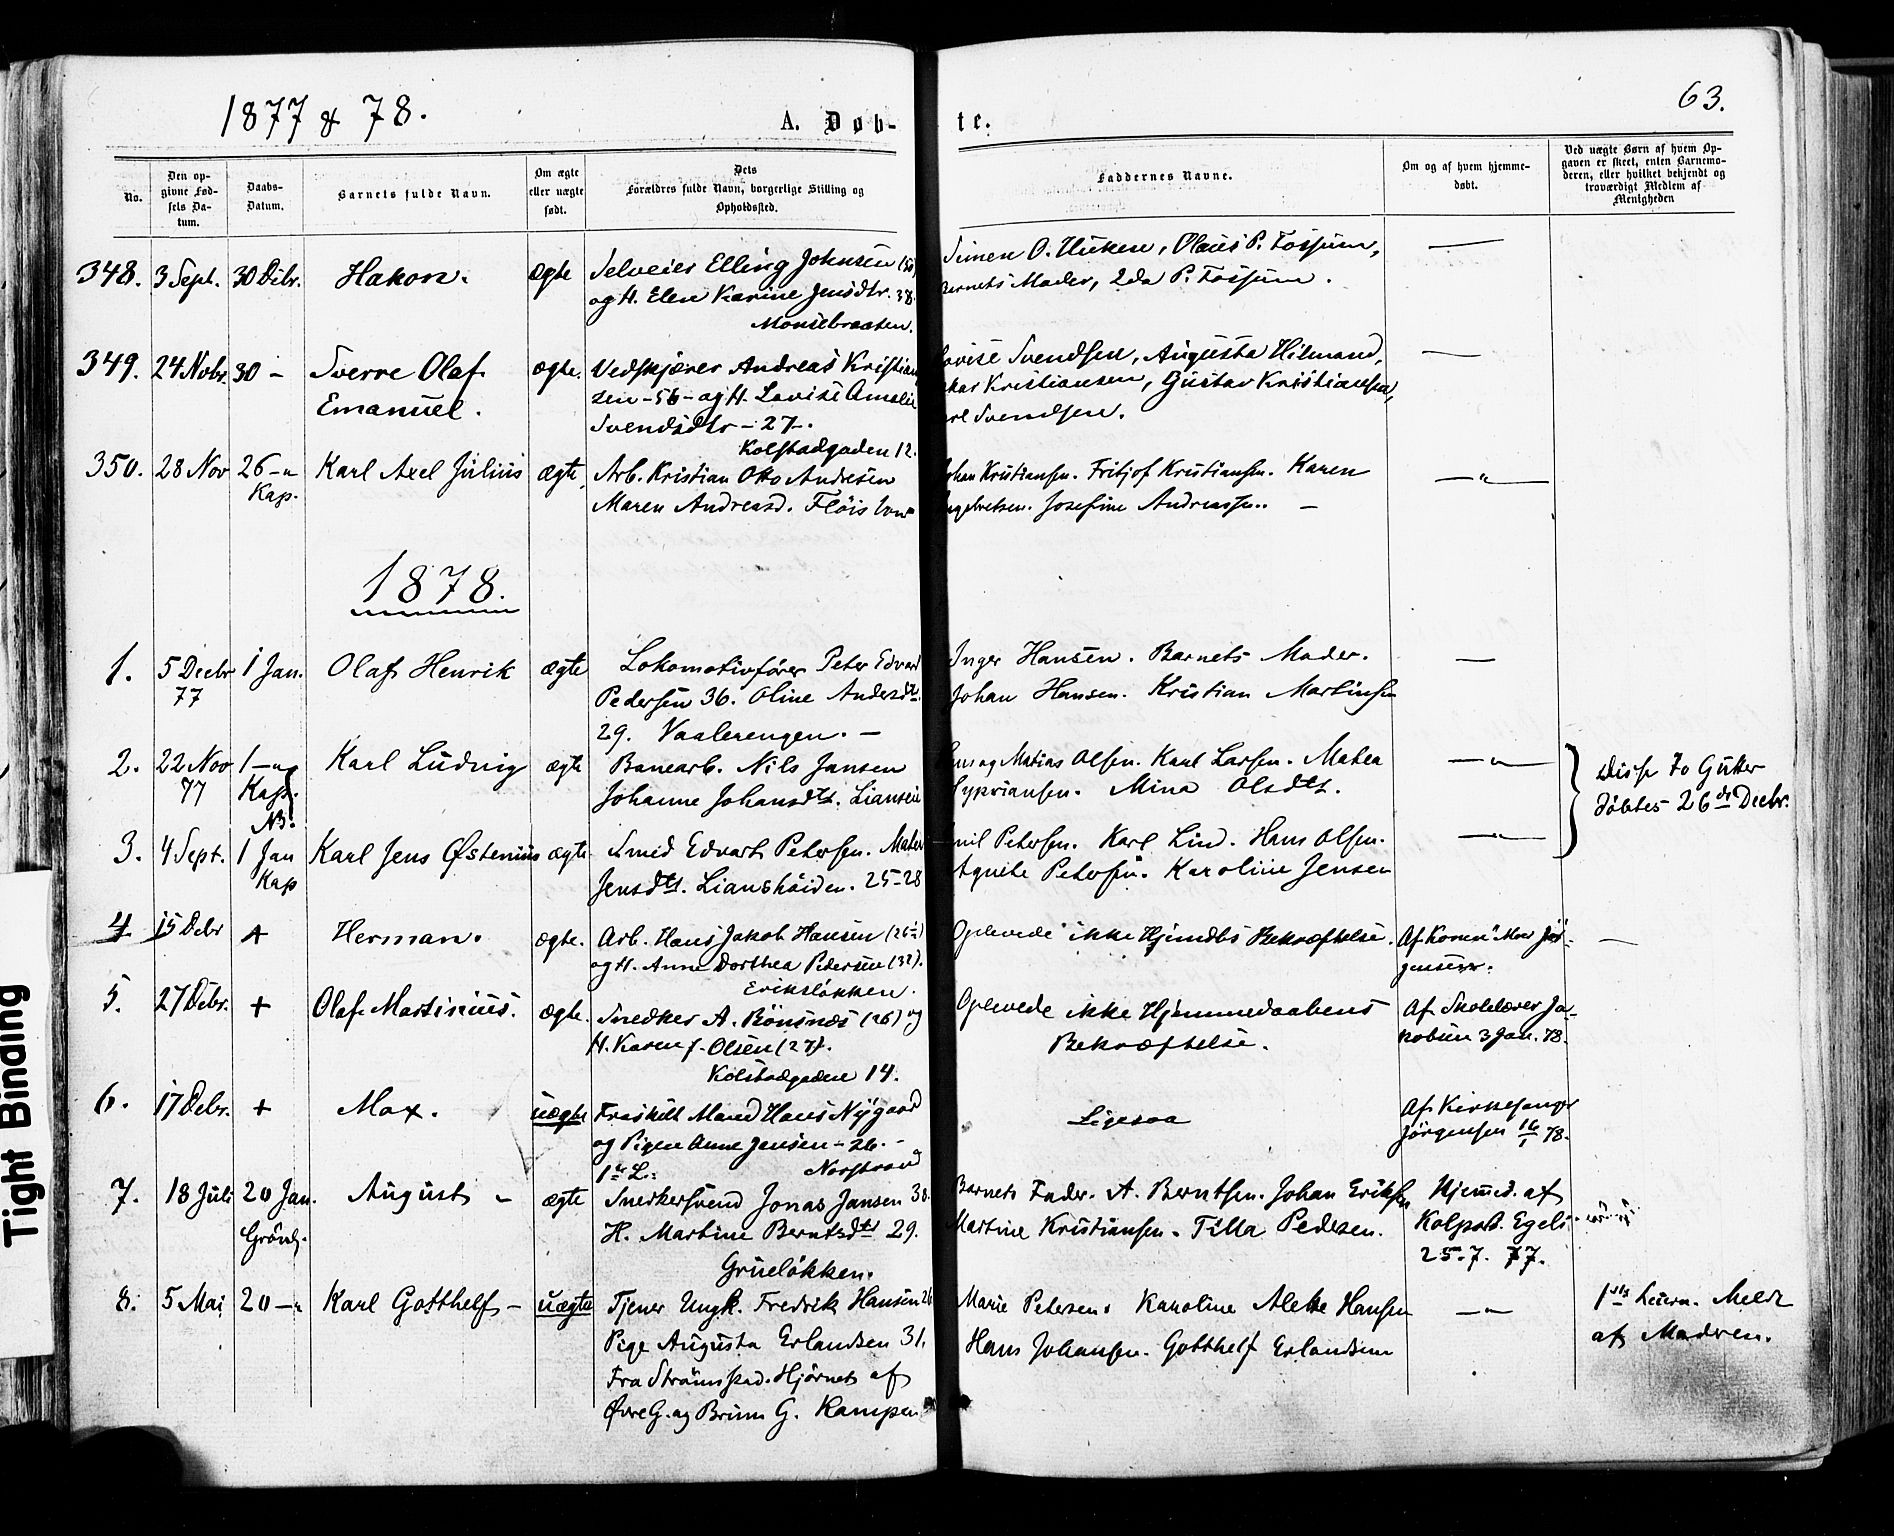 1877 & 78.
A. Døb-
te.
63.
No.
Den op-
givne Fød-
sels Da-
tum.
Daabs-
Datum.
Barnets fulde Navn.
Om ægte
eller uægte
født.
Dets
Forældres fulde Navn, borgerlige Stilling og
Opholdssted.
Faddernes Navne.
Om og af hvem hjemme-
døbt.
Ved uægte Børn af hvem Op-
gaven er skeet, enten Barnemo-
deren, eller hvilket bekjendt og
troværdigt Medlem af
Menigheden
348. 3 Sept. 30 Debr. Hakon. ægte
Selveier Elling Johnsen
og H. Elen Karine Jensdtr. 38.
Monsebraaten.
Simen O. Olaus P. Fossum,
Moder, P. Fossum.
349. 24 Nobr. 30 - Sverre Olaf
Emanuel.
ægte.
Vedskjærer Andreas Kristian
sen - 56 - og H. Lovise Amalie
Svendsdtr - 27 -.
Kolstadgaden 12.
Svendsen, Augusta Hilmand,
Kristiansen, Gustav Kristiansen,
Svendsen.
350. 28 Nov 26 - "
Kap.
Karl Axel Julius ægte
Arb. Kristian Otto Andresen
Maren Andreasd.
Kristiansen. Fritjof Kristiansen. Karen
Josefine Andreassen. -
- " -
1878.
1. 5 Decbr
77
1 Jan. Olaf Henrik ægte
Lokomotivfører Peter Edvard
Pedersen 36. Oline Andersdtr.
29. Vaalerengen. -
Inger Hansen. Barnets Moder.
Johan Hansen. Kristian Martinsen
2. 22 Nov
77
1 - "
Kap.
NB.
Karl Ludvig ægte
Banearb. Nils Jansen
Johanne Johansdtr.
Matias Olsen. Karl Larsen. Matea
Mina Olsdtr.
- " -
Disse To Gutter
døbtes 26de Decbr.
3. 4 Sept. 1 Jan
Kap
Karl Jens Østenius ægte
Smed Edvart Petersen.
Jensdtr. Lianshøiden. 25-28
Petersen. Karl Lind. Hans Olsen.
Petersen. Karoline Jensen
- " -
4 15 Debr + Herman. ægte.
Arb. Hans Jakob Hansen
og H. Anne Dorthea Pedersen (32).
Eriksløkken.
Oplevede ikke Hjemdbs Bekræftelse.
Af
gensen.
5. 27 Debr. + Olaf Martinius. ægte.
Snedker A. Bönsnæs (26) og
H. Karen J. Olsen (27).
Kolstadgaden 14.
Oplevede ikke Hjemmedaabens
Bekræftelse.
Af Skolelærer Ja-
kobsen 3 Jan. 78.
6. 17 Debr. + Max. uægte
Fraskilt Mand Hans Nygaard
og Pigen Anne Jensen - 26. -
1ste L. Norstrand
Ligesaa
Af Kirkesanger
Jörgensen 16/1 78.
7. 18 Juli 20 Jan.
Grönl.
August - ægte
Snedkersvend Jonas Jansen 30.
H. Martine Berntsdtr 29.
Grueløkken.
Barnets Fader. A. Berntsen. Johan Eriksen
Martine Kristiansen. Tilla Pedersen.
Hjemmed. af
Kolport. Egels
25-7. 77.
8. 5 Mai 20 - " Karl Gotthelf - uægte
Tjener Ungk. Fredrik Hansen 26
Pige Augusta Erlandsen 31.
Fra Strömstad. Hjørnet af
Øvre G. og Brinn G. Kampen
Marie Petersen. Karoline Hansen
Hans Johansen. Gotthelf Erlandsen
- " -
1ste Leierm. Meldt
af Madren.
Tight Binding